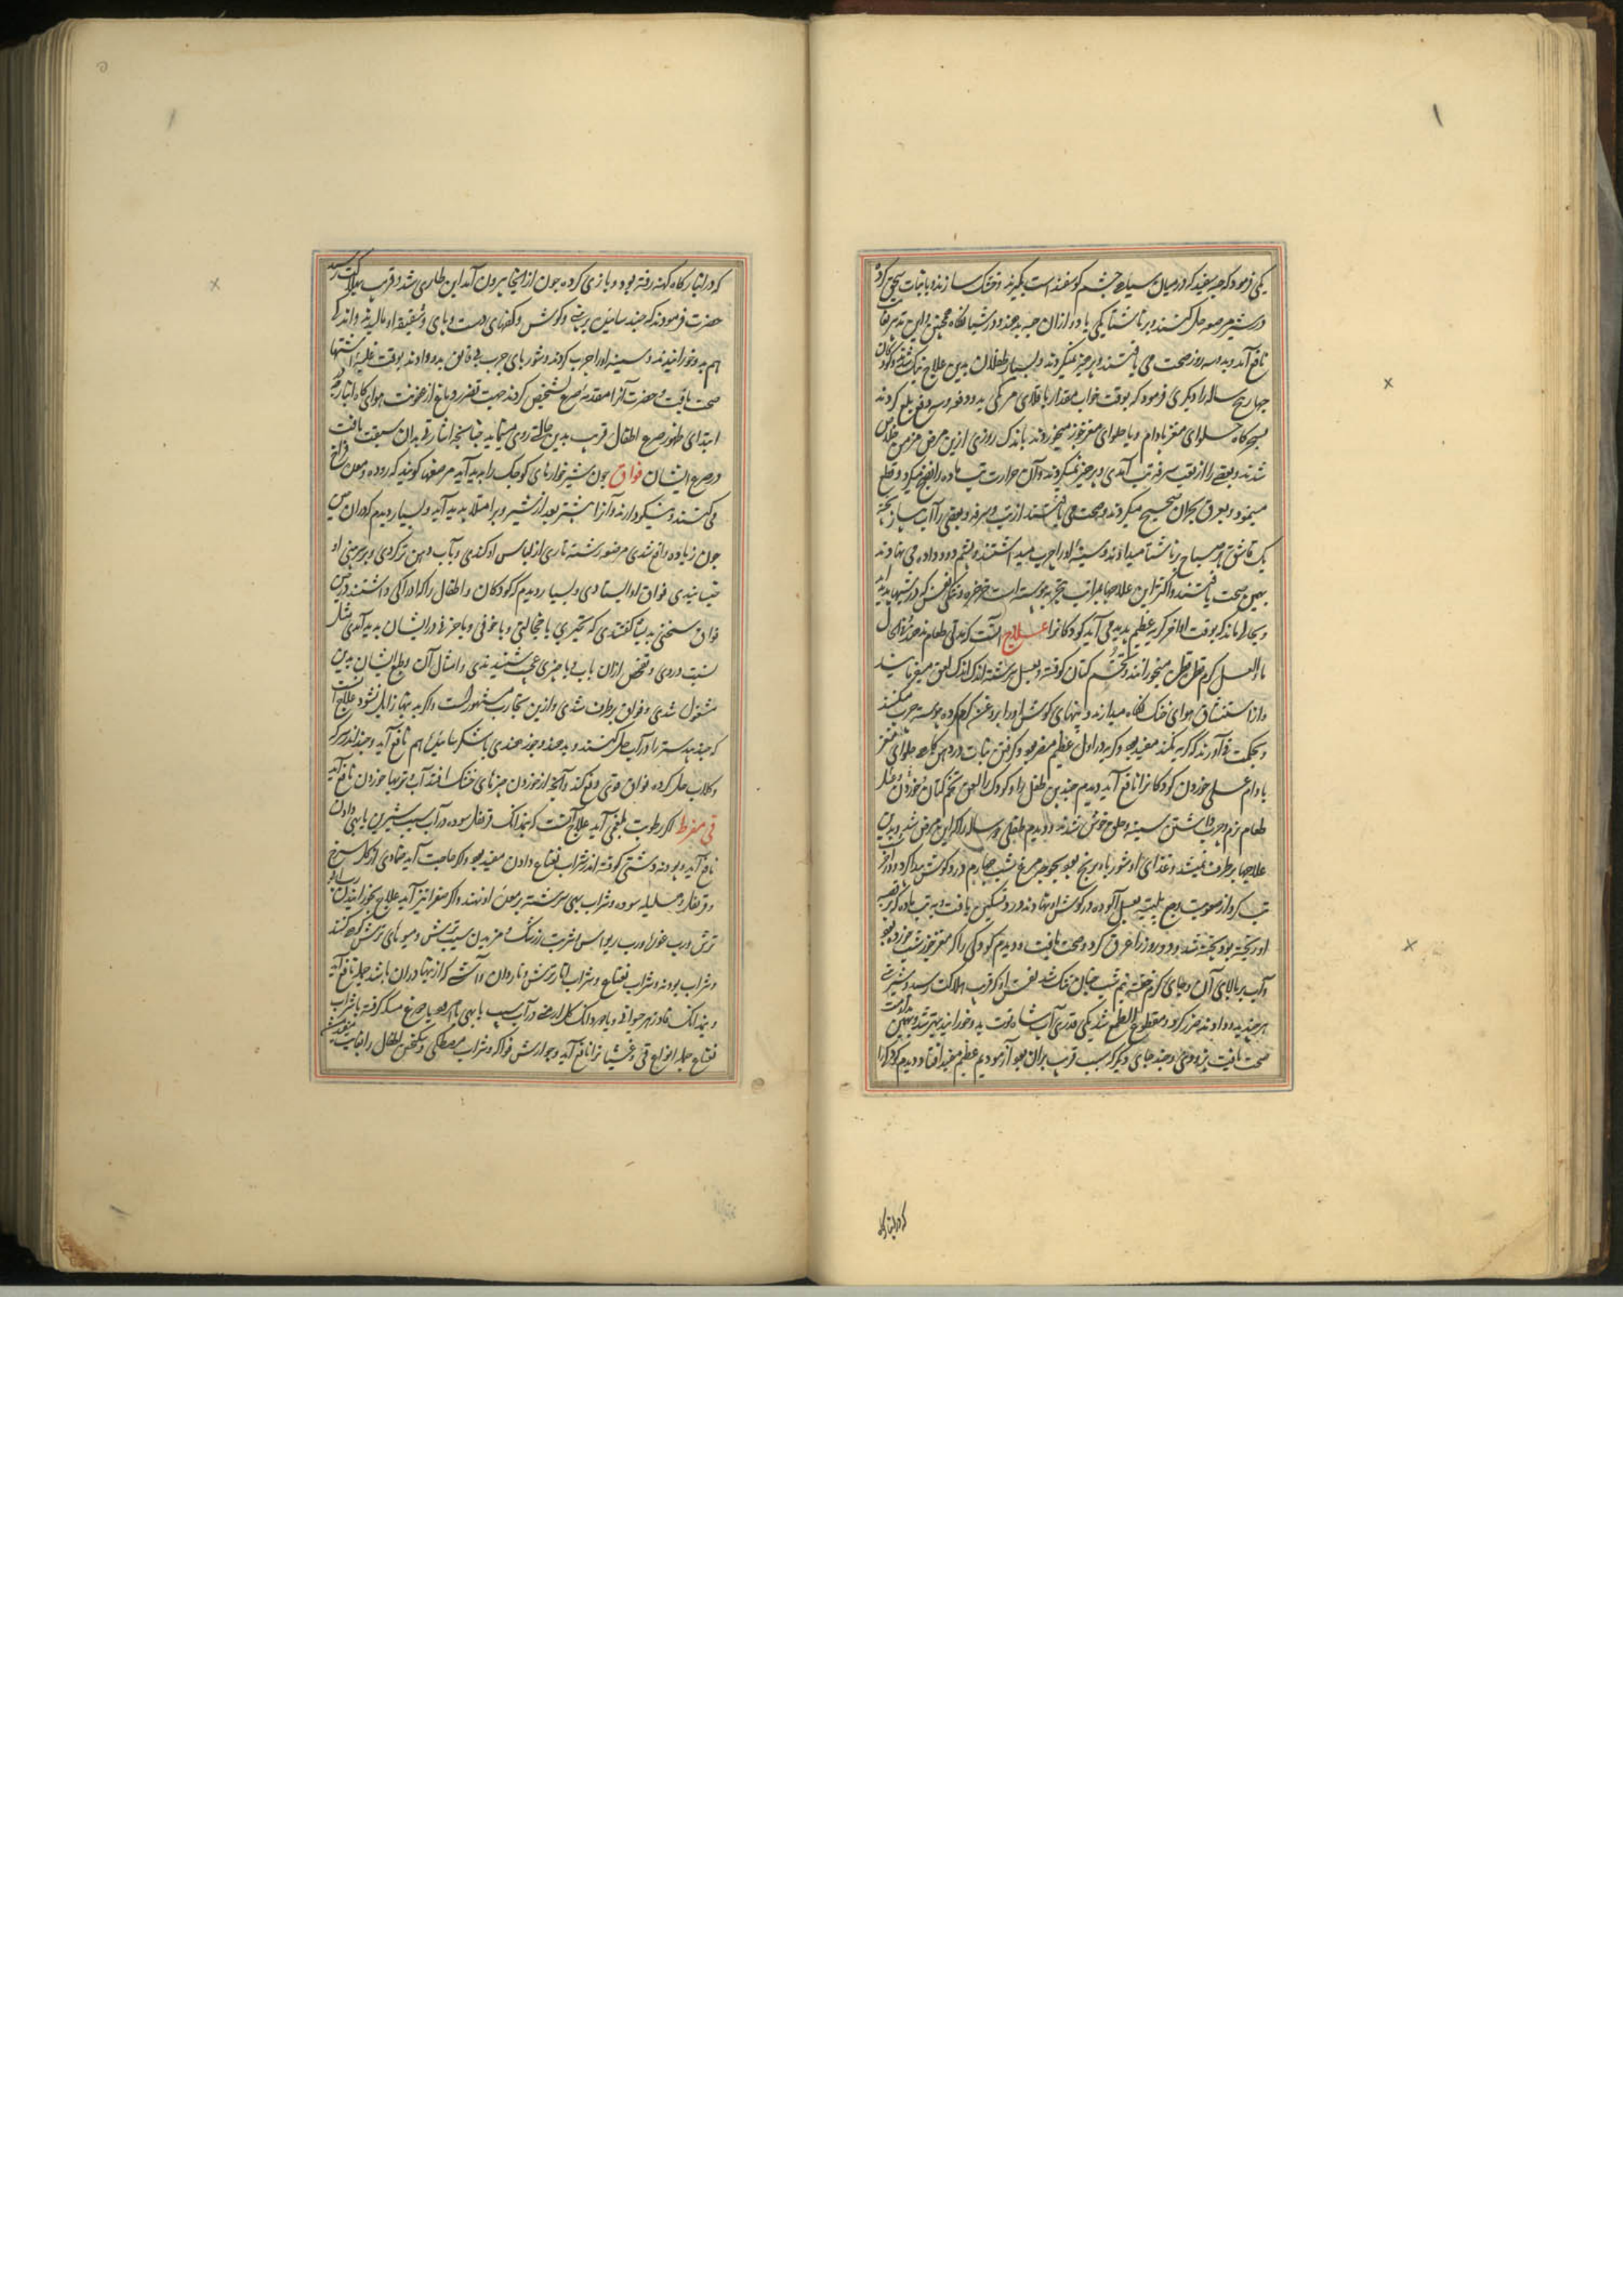 یکی فرمود که حبه سفید که در میان سیاهی چشم گوسفند است بگیرند و خشک سازند و با نبات سحق کرده
در شیر مرضعه حل کنند و بر ناشتا یکی یا دو از آن حبه بدهند و در شبانگاه همچنین و این تدبیر
نافع آمد و بدو سه روز صحت می یافتند و پرهیز نمیکردند و بسیار طفلان بدین علاج نیک شدند و کودکان
چهار پنج ساله را دیگری فرمود که بوقت خواب مقدار باقلای بدو دفعه و سه دفع بلع کردند
حلوای مغز بادام و یا حلوای مغز جوز میخوردند باندک روزی ازین مرض مزمن خلاص
شدند و بعضی را از تب آمدی و پرهیز نمیکردند و آن حرارت تب ماده را نضج میکرد و قلع
مینمود و بعرق بحران صحیح میکردند و صحت می یافتند از تب و سرفه و بعضی را آب پیاز پخته
یک قاشق هر صباح بر ناشتا میدادند و سینه او را چرب میداشتند و پشم دود داده می نهادند
بهمین صحت یافتند و اکثر این علاجها بمراتب بتجربه پیوسته است خرخره و تنگی نفس که در شبها پدید آید
و بحالی ماند که بوقت اواخر گریه عظیم پدید می آید کودکانرا علاج آنست که
ما العسل گرم میخورانند و تخم کتان کوفته و بعسل سرشته اندک اندک لعق میفرمایند
و از استنشاق هوای خنک نگاه میدارند و بنهای گوش او را بروغن گرم کرده پیوسته چرب میکنند
و بحکمت می آورند که گریه نکند مفید بود و گریه در اول عظیم مضر بود و گرفتن نبات در دهن حلوای مغز
بادام عسلی خوردن کودکانرا نافع آید و دیدم چندین طفل را و کودک را لعق تخم کتان و خوردن
طعام نرم و چرب داشتن سینه و حلق خوش شدند و دیدم طفلی دو ساله را که این مرض شد و بدین
علاجها برطرف نمیشد و غذای او شوربا و برنج بود بچوجه مرغ شب چهارم درد گوش پیدا کرد و در آخر
تب کرد از صعوبت وجع پلیته بعسل آلوده در گوش او نهادند درد تسکین یافت و به تب ماده که بر قصبه
او ریخته بود پخته شد و دوم روز را عرق کرد و صحت یافت و دیدم کودکی را که مغز جوز شب خورده بود
و آب بر بالای آن و جای گرم خفته نیم شب چنان تنگ شد نفس او که قرب هلاکت رسید و شربتی
هر چند بدو دادند ضرر کرد و مقطوع الطمع شد یکی قدری آب شاه توت بدو خورانید بهتر شد و بهمین
صحت یافت بزودی و چند جای دیگر که سبب قریب بدان بود آزمودیم عظیم مفید افتاد و دیدم کودکی را
که در انبار کاه
که در انبار کاه کهنه رفته بود و بازی کرده چون از آنجا بیرون آمد این طاری شد و قریب بهلاکت رسید
حضرت فرمودند که چند سامیزی بر بینی و گوش و کفهای دست و پای و شقیقه او مالیدند و اندکی
هم بدو خورانیدند و سینه او را چرب کردند و شوربای چرب بدو دادند بوقت غلبه اشتها
صحت یافت و حضرت آنرا مقدمه صرع تشخیص کردند جهت تضرر دماغ از عفونت هوای کاه انبار
ابتدای ظهور صرع اطفال قریب بدین حالت روی مینماید چنانچه اشارتی بدان سبقت یافت
در صرع ایشان فواق چون شیر خوارهای کوچک را پدید آید مرضعها گویند که روده و معده فراخ
می کشند و نیکو دارند و آنرا بیشتر بعد از شیر و پر امتلا پدید آید و بسیار دیدم که در آن
چون زیاده واقع شدی مرضعه رشته تاری از لباس او کندی و بآب دهن تر کردی و بر بینی او
چسبانیدی فواق او ایستادی و بسیار دیدم که کودکان و اطفال را که ادراکی داشتند در
فواق سخنی گفتندی که تحیری یا خجالتی و یا خوفی و یا حزنی در ایشان پدید آمدی مثل
نسبت دزدی و تفحص از آن باب و یا چیزی عجب شنیدندی و امثال آن و طبع ایشان بدین
مشغول شدی و فواق برطرف شدی و ازین تجارب مشهور است و اگر به اینها زایل نشود علاج آنست
که جند بیدستر را در آب حل کنند و بدهند و جوز هندی با شکر سائیده هم نافع آید و جند اندر سرکه
و گلاب حل کرده فواق قوی دفع کند و آنچه از خوردن چیزهای خشک افتد آب و شربتها خوردن نافع آید
قی مفرط اگر رطوبت بلغمی آید علاج آنست که نیمدانک قرنفل سوده در آب سیب شیرین یا بهی دادن
نافع آید و پودنه دشتی کوفته اندر شراب نعناع دادن مفید بود و اگر حاجت آید ضمادی از گل سرخ
و قرنفل و هلیله سوده و شراب بهی سرشته بر معده او نهند و اگر صفرا نیز آید علاج بخورانیدن رب انار
ترش و رب غوره و رب ریواس و شربت زرشک و مزیدن سیب ترش و میوهای ترش کنند
و شراب پودنه و شراب نعناع و شراب انار ترش و ناردان و آشی که ازینها در آن باشد جمله نافع آید
و نیمدانک فادزهر حیوانی و یا دو دانک گل ارمنی در آب سیب یا بهی یا مسکه گرفته با شراب
نعناع جمله انواع قی و غشیانرا نافع آید و جوارش فواکه و شراب مصطکی و سکنجبین اطفال را بغایت مفید